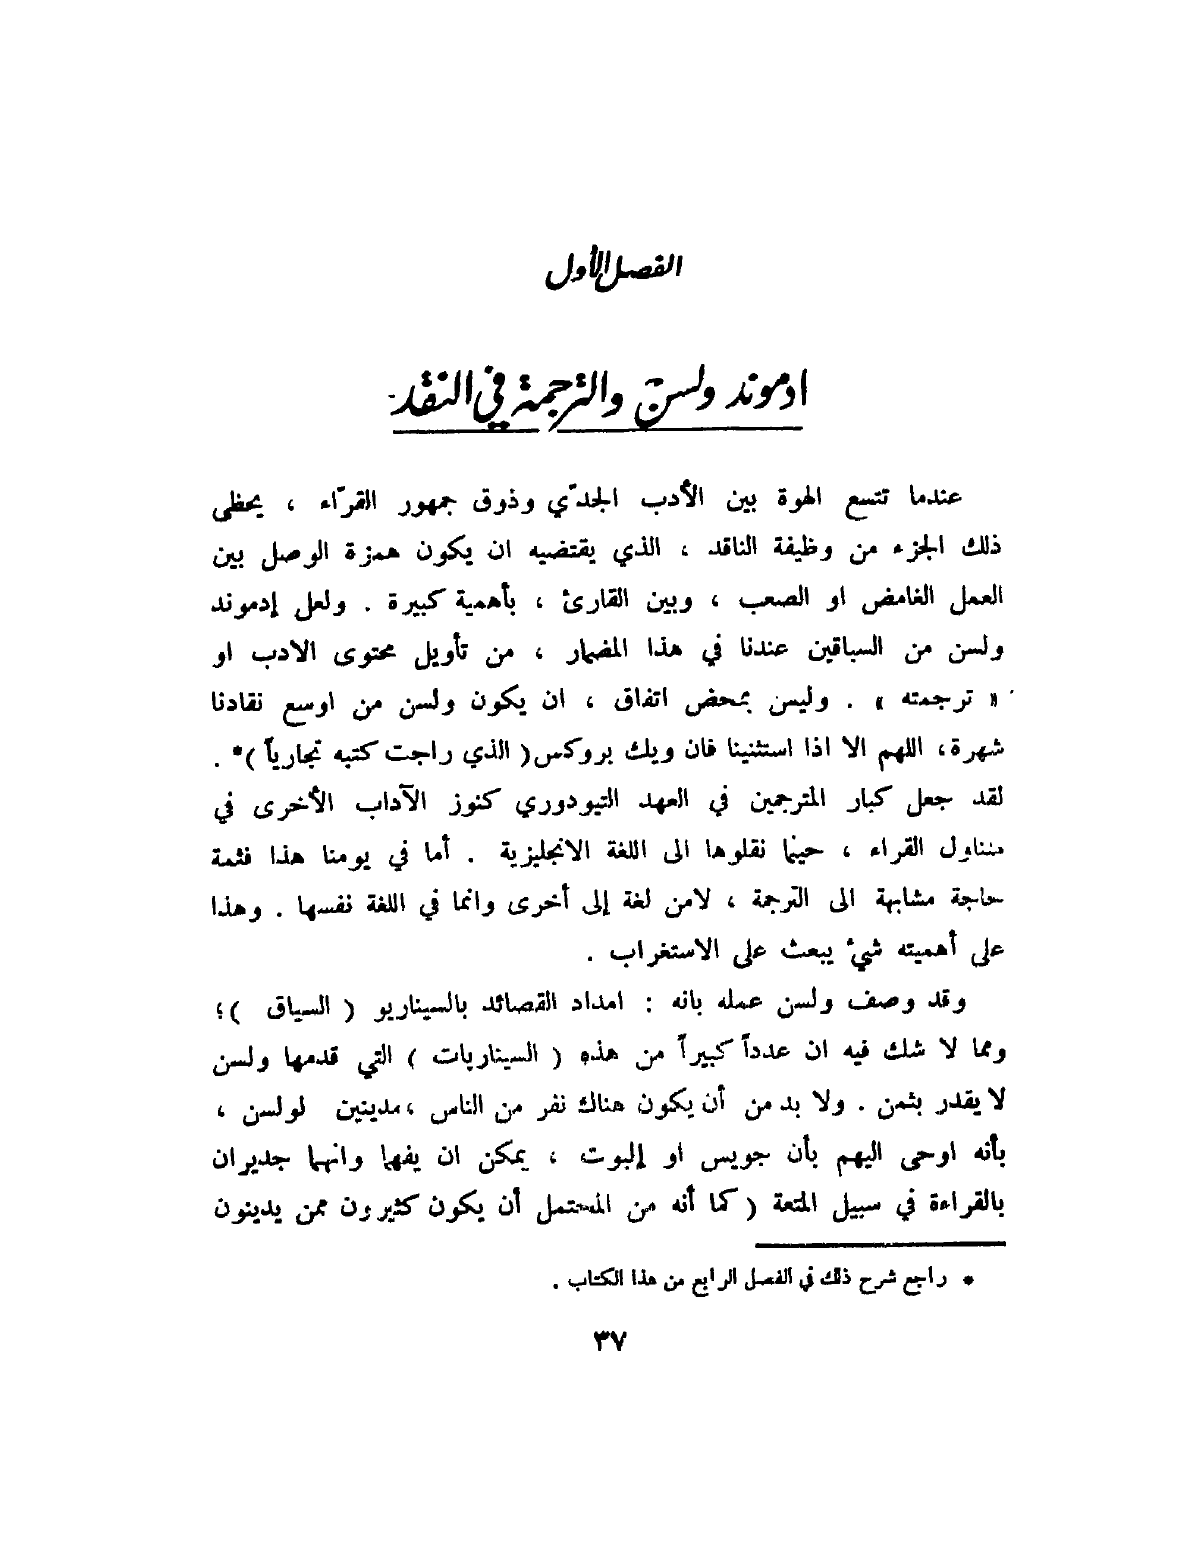 الفصل الأول
ادموند ولسن والترجمة في النقد
عندما تتسع الهوة بين الأدب الجدّي وذوق جمهور القرّاء ، يحظى
ذلك الجزء من وظيفة الناقد ، الذي يقتضيه ان يكون همزة الوصل بين
العمل الغامض او الصعب ، وبين القارئ ، بأهمية كبيرة . ولعل إدموند
ولسن من السباقين عندنا في هذا المضمار ، من تأويل محتوى الادب او
« ترجمته » . وليس بمحض اتفاق ، ان يكون ولسن من اوسع نقادنا
شهرة، اللهم الا اذا استثنينا فان ويك بروكس( الذي راجت كتبه تجارياً )* .
لقد جعل كبار المترجمين في العهد التيودوري كنوز الآداب الأخرى في
متناول القراء ، حينما نقلوها الى اللغة الانجليزية . أما في يومنا هذا فثمة
حاجة مشابهة الى الترجمة ، لامن لغة إلى أخرى وانما في اللغة نفسها . وهذا
على أهميته شيءٌ يبعث على الاستغراب .
وقد وصف ولسن عمله بانه : امداد القصائد بالسيناريو ( السياق ) ؛
ومما لا شك فيه ان عدداً كبيراً من هذه ( السيناريات ) التي قدمها ولسن
لا يقدر بثمن . ولا بد من أن يكون هناك نفر من الناس ، مدينين لولسن ،
بأنه اوحى اليهم بأن جويس او إليوت ، يمكن ان يفهما وانهما جديران
بالقراءة في سبيل المتعة ( كما أنه من المحتمل أن يكون كثيرون ممن يدينون
* راجع شرح ذلك في الفصل الرابع من هذا الكتاب .
٣٧